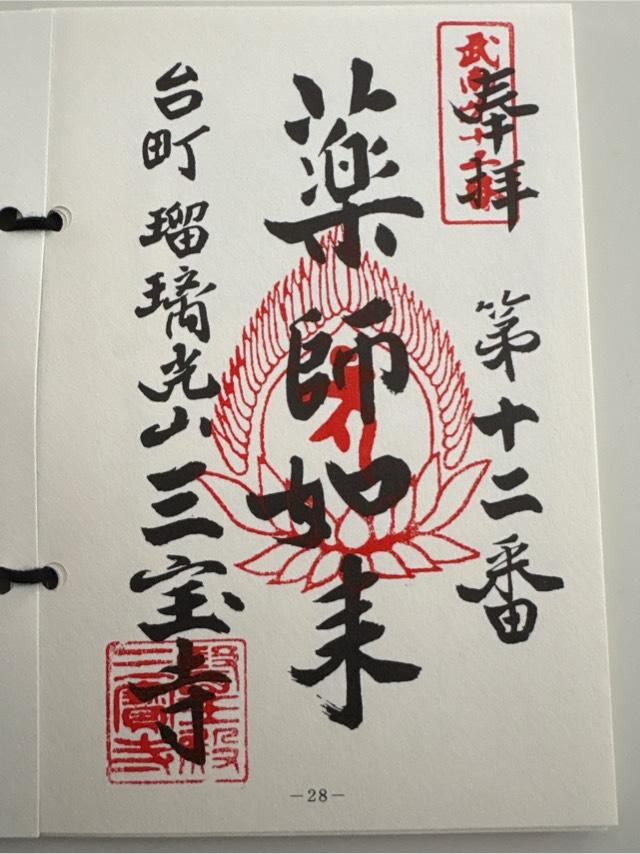 奉拝
第十二番
薬師如来
台町 瑠璃光山三宝寺
三寳寺
－28－